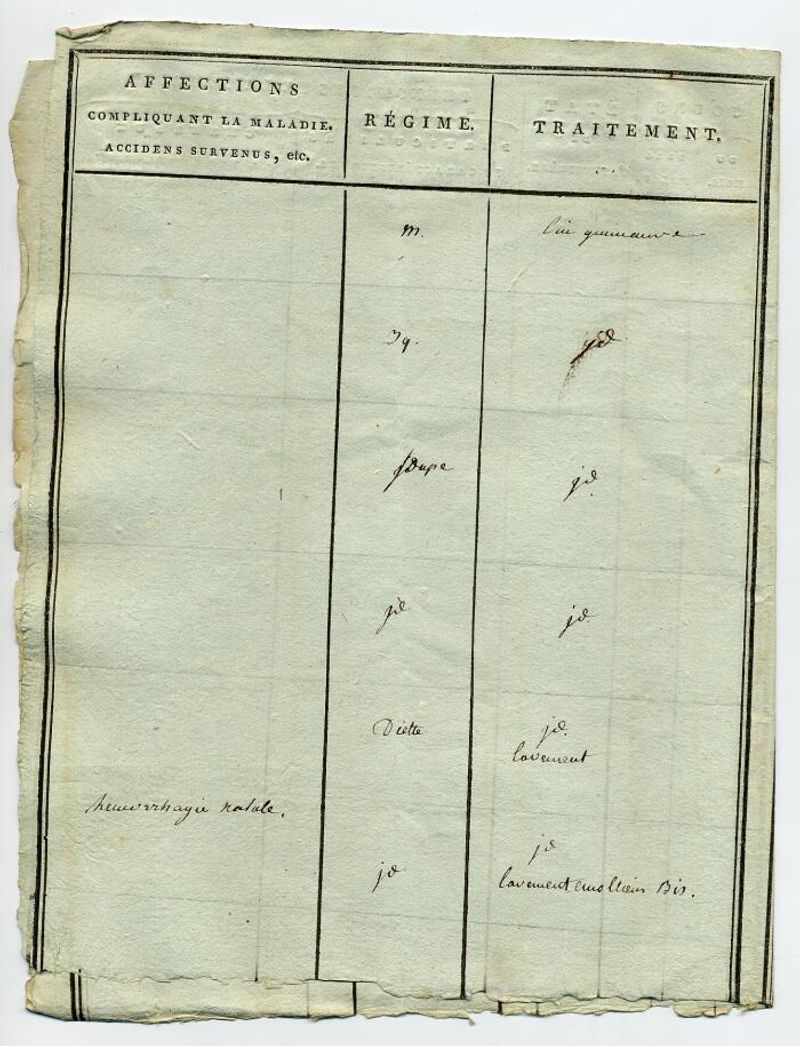 AFFECTIONS
COMPLIQUANT LA MALADIE.
ACCIDENS SURVENUS, etc.
RÉGIME.
TRAITEMENT.
m.
lin guimauve
39.
jd
soupe
jd
jd
jd
Diette
jd.
lavement
hemorrhagie nasale.
jd
jd
lavement emolliens Bis.